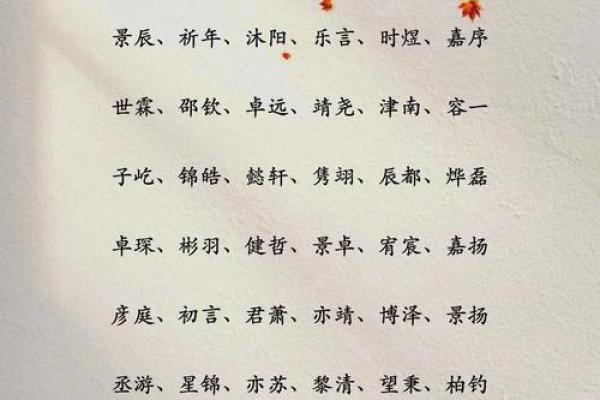 景辰、祈年、沐阳、乐言、时煜、嘉序
世霖、邵钦、卓远、靖尧、津南、容一
子屹、锦皓、懿轩、隽翊、辰都、烨磊
卓琛、彬羽、健哲、景卓、宥宸、嘉扬
彦庭、初言、君萧、亦靖、博泽、景扬
丞游、星锦、亦苏、黎清、望秉、柏钓